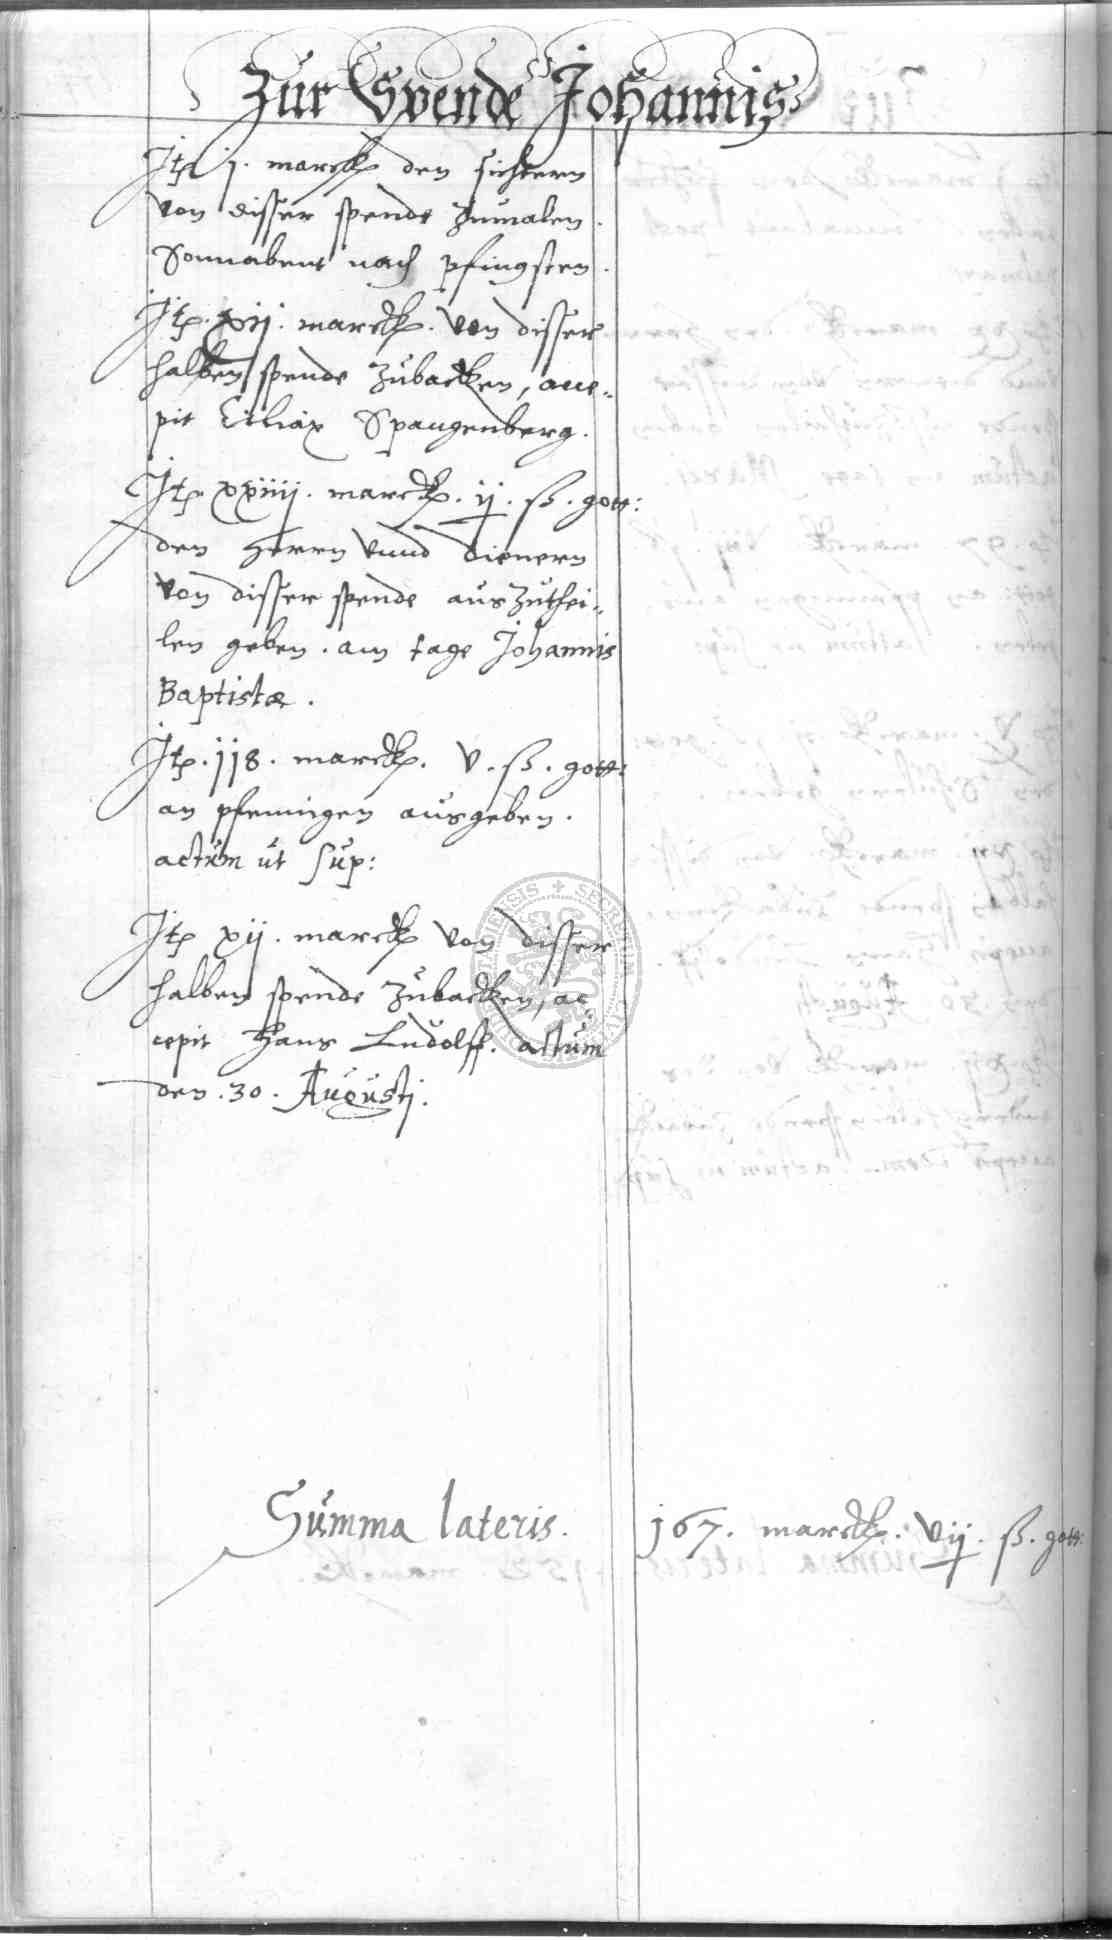 Zur Spende Johannis
Jtem j. marck den sichtern
von disser spende zumalen.
Sonnabent nach pfingsten.
Jtem. xij. marck. von disser
halben spende zubacken, acce-
pit Ciliax Spangenberg.
Jtem xxiiij. marck. ij. ß. gott:
den Herrn vnnd dienern
von disser spende auszuthei-
len geben. am tage Johannis
Baptistæ.
Jtem. 118. marck. v. ß. gott:
an pfennigen ausgeben.
actum ut sup:
Jtem xij. marck von disser
halben spende zubacken, ac-
cepit Hans Ludolff. actum
den. 30. Augustj.
Summa lateris. 167. marck. vij. ß. gott: